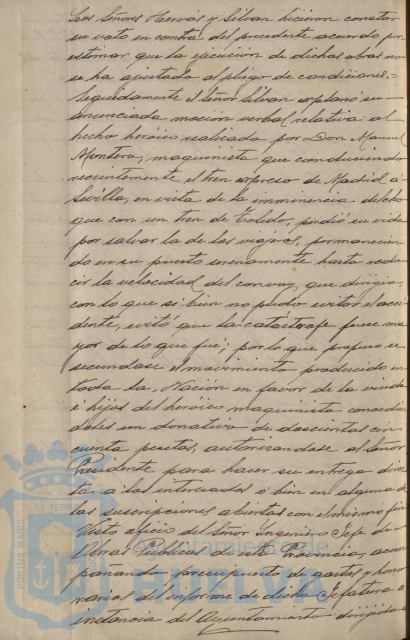 Los Señores Hervás y Silvan hicieron constar
su voto en contra del precedente acuerdo por
estimar que la ejecución de dichas obras no
se ha ajustado al pliego de condiciones.=
Seguidamente el Señor Silvan explanó su
anunciada moción verbal relativa al
hecho heróico realizado por Don Manuel
Montero, maquinista que conduciendo
recientemente el tren expreso de Madrid á
Sevilla, en vista de la imminencia del cho
que con un tren de Toledo, perdió su vida
por salvar la de los viajeros, permanecien
do en su puesto serenamente hasta redu
cir la velocidad del convoy que dirigia,
con lo que si bien no pudo evitar el acci
dente, evitó que la catástrofe fuese ma
yor de lo que fué; por lo que propuso se
secundase el movimiento producido en
toda la Nación en favor de la viuda
é hijos del heróico maquinista concedien
doles un donativo de doscientas cin
cuenta pesetas, autorizandose al Señor
Presidente para hacer su entrega direc
ta á los interesados ó bien en alguna de
las suscripciones abiertas con el mismo fin
Visto oficio del Señor Ingeniero Jefe de
Obras Públicas de esta Provincia, acom
pañando presupuesto de gastos y hono
rarios del informe de dicha Jefatura á
instancia del Ayuntamiento dirigida
PORTUS MARIS ET TERRÆ
Ayuntamiento de
HUELVA